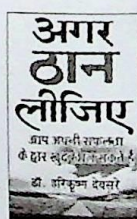 अगर
ठान
लीजिए
आप अपनी सफलता
के द्वार खुद खोल सकते हैं
डॉ. हरिकृष्ण देवसरे